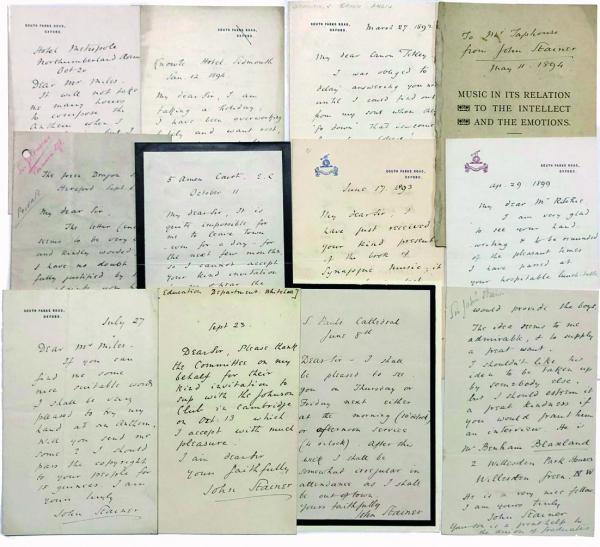 SOUTH PARKS ROAD,
OXFORD.
Hotel Metropole
Northumberland Avenue
Oct. 20
Dear Mr Miles.
It will not take
me many hours
to compose the
Anthem when I
SOUTH PARKS ROAD,
OXFORD.
Knowle Hotel, Sidmouth
Jan. 12 1896
My dear Sir, I am
taking a holiday,
I have been overworking
and want rest,
SOUTH PARKS ROAD,
OXFORD.
March 27 1892
My dear Canon
I was obliged to
delay answering you
until I could find out
from my son when
To Mr Taphouse
from John Stainer
May 11. 1894
MUSIC IN ITS RELATION
TO THE INTELLECT
AND THE EMOTIONS.
Private
The Green Dragon
Hereford Sept
My dear Sir.
The letter
seems to be very
and kindly worded
I have no doubt
fully justified by
5 Amen Court. E.C
October 11
My dear Sir, It is
quite impossible for
me to leave town
even for a day for
the next few months
so I cannot accept
your kind invitation
SOUTH PARKS ROAD,
OXFORD.
June 17. 1893
My dear Sir, I
have just received
your kind present
of the book of
Synagogue Music; it
SOUTH PARKS ROAD,
OXFORD.
Ap. 29 1899
My dear Mr Ritchie
I am very glad
to see your hand
writing & to be reminded
of the pleasant times
I have passed at
your hospitable lunch-table
SOUTH PARKS ROAD,
OXFORD.
July 27
Dear Mr Miles.
If you can
find me some
nice suitable words
I shall be very
pleased to try my
hand at an Anthem.
Will you send me
some? I should
pass the copyright
to your people for
guineas. I am
Yours truly
John Stainer
Education Department Whitehall]
Sept 23.
Dear Sir. Please thank
the Committee on my
behalf for their
kind invitation to
sup with the Johnson
Club in Cambridge
on Oct. 13 which
I accept with much
pleasure.
I am dear Sir
yours faithfully
John Stainer
S. Pauls Cathedral
June 8th
Dear Sir - I shall
be pleased to see
you on Thursday or
Friday next either
at the morning (10 o'clock)
or afternoon service
(4 o'clock) After the
week I shall be
somewhat irregular in
attendance as I shall
be out of town.
Yours faithfully
John Stainer
Sir John Stainer
would provide the boys.
The idea seems to me
admirable, & to supply
a great want.
I shouldn't like his
idea to be taken up
by somebody else.
but I should esteem it
a great kindness if
you would grant him
an interview. He is
Mr Benham Blaxland
2 Willesden Park Houses
Willesden Green. N W
He is a very nice fellow
I am yours truly,
John Stainer